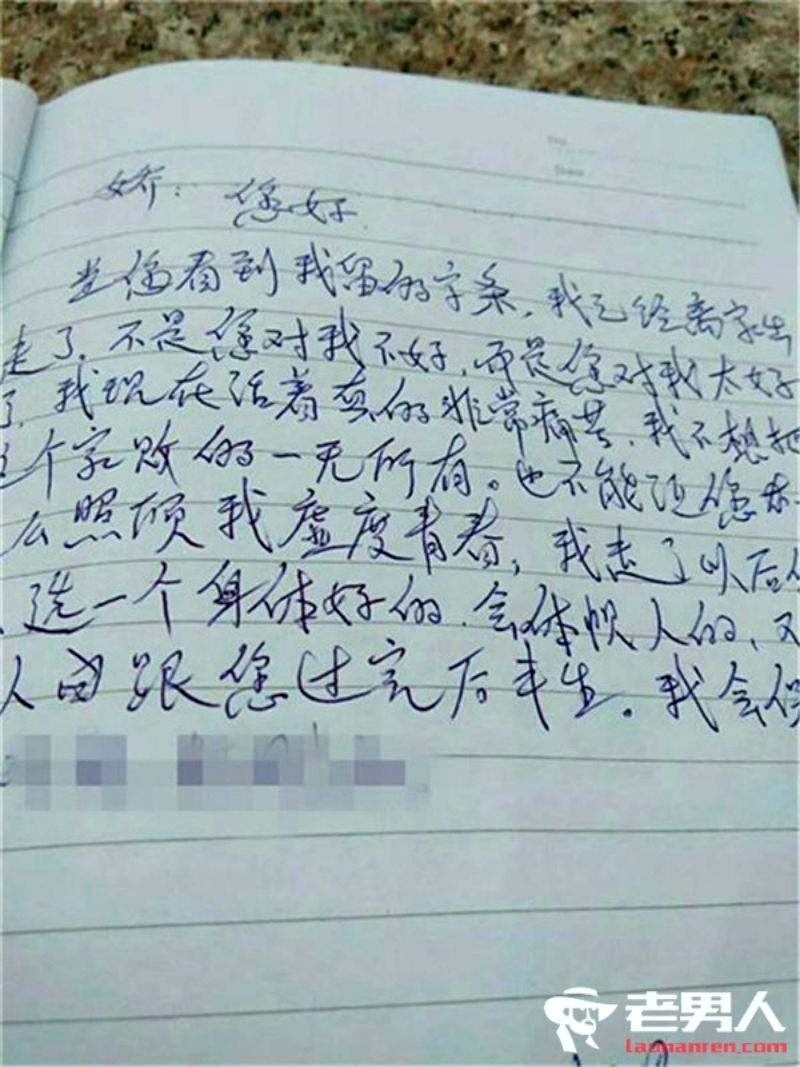 娇：您好
当您看到我留的字条，我已经离家出
走了，不是您对我不好，而是您对我太好
了，我现在活着真的非常痛苦，我不想把
这个家败的一无所有。也不能让您
么照顾我虚度青春，我走了以后
选一个身体好的，会体呗人的，又
人由跟您过完后半生。我会保
老男人
laonanren.com